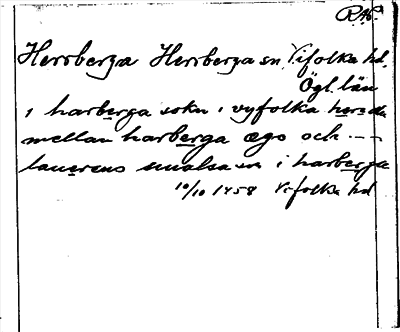 RAp.
Herrberga Herrberga sn, Vifolka hd,
Ögl. län
i harberga sokn i vyfolka hærade
mellan harberga ægo och ---
laurens smalsa son i harberga
10/10 1458 Vifolka hd